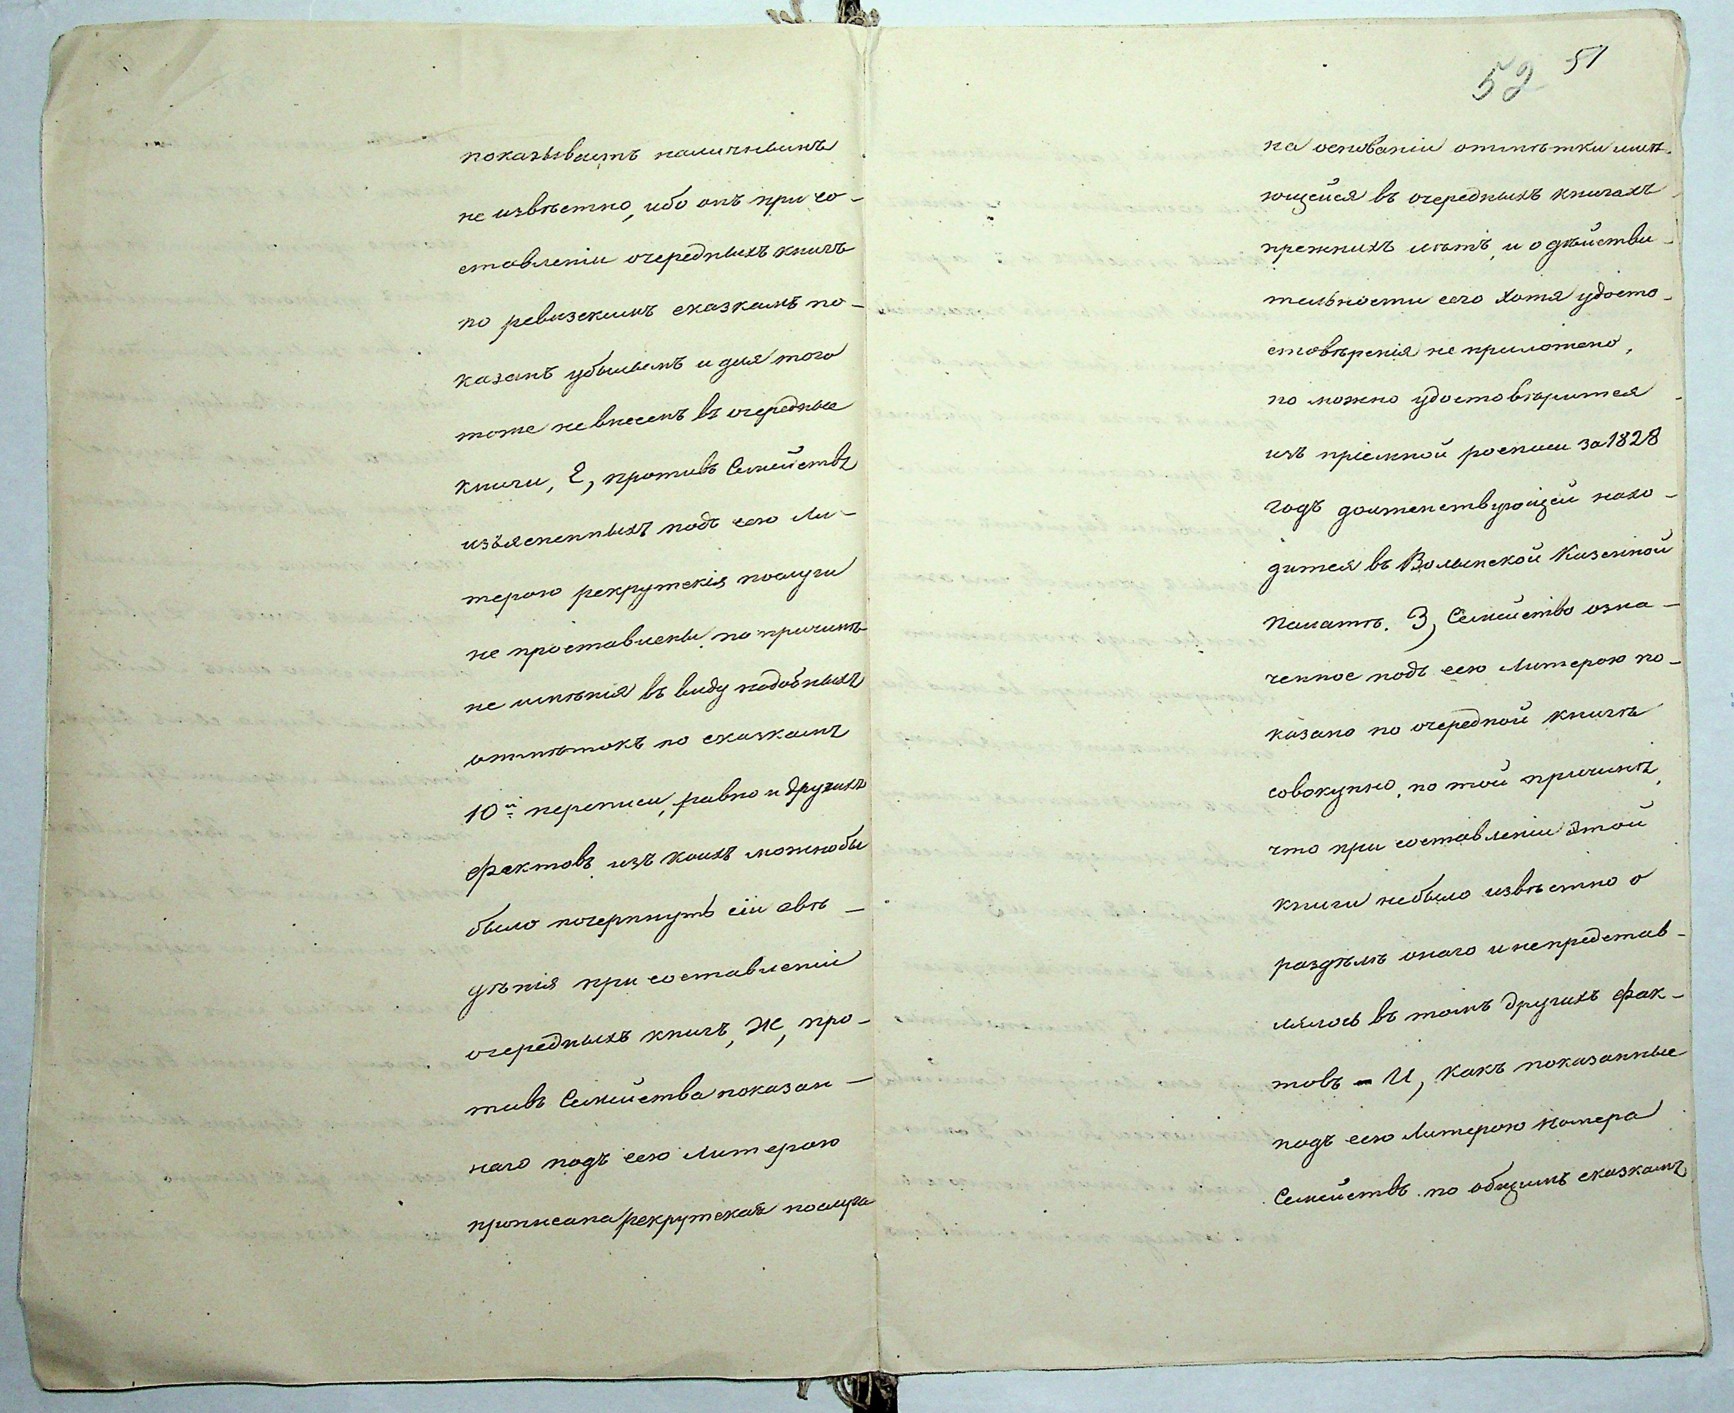 показываетъ наличнымъ
не извѣстно, ибо онъ при со-
ставленіи очередныхъ книгъ
по ревизскимъ сказкамъ по-
казанъ убылымъ и для того
тоже не внесенъ въ очередные
книги, Е, противъ Семействъ
изъясненныхъ подъ сею Ли-
терою рекрутскія послуги
не проставлены по причинѣ
не имѣнія въ виду подобныхъ
отмѣтокъ по сказкамъ
10й переписи, равно и другихъ
фактовъ изъ коихъ можно бы
было почерпнуть сіи свѣ-
дѣнія при составленіи
очередныхъ книгъ, Ж, про-
тивъ Семейства показан-
наго подъ сею литерою
прописана рекрутская послуга
52 51
на основаніи отмѣтки имѣ-
ющейся въ очередныхъ книгахъ
прежнихъ лѣтъ, и о дѣйстви-
тельности сего хотя удосто-
стовѣренія не приложено,
но можно удостовѣрится
изъ пріемной росписи за 1828
годъ долженствующей нахо-
дится въ Волынской Казенной
Палатѣ. З, Семейство озна-
ченное подъ сею Литерою по-
казано по очередной книгѣ
совокупно, по той причинѣ,
что при составленіи этой
книги небыло извѣстно о
раздѣлѣ онаго и непредстав-
лялось въ томъ другихъ фак-
товъ - И, какъ показанные
подъ сею Литерою номера
Семействъ по общимъ сказкамъ